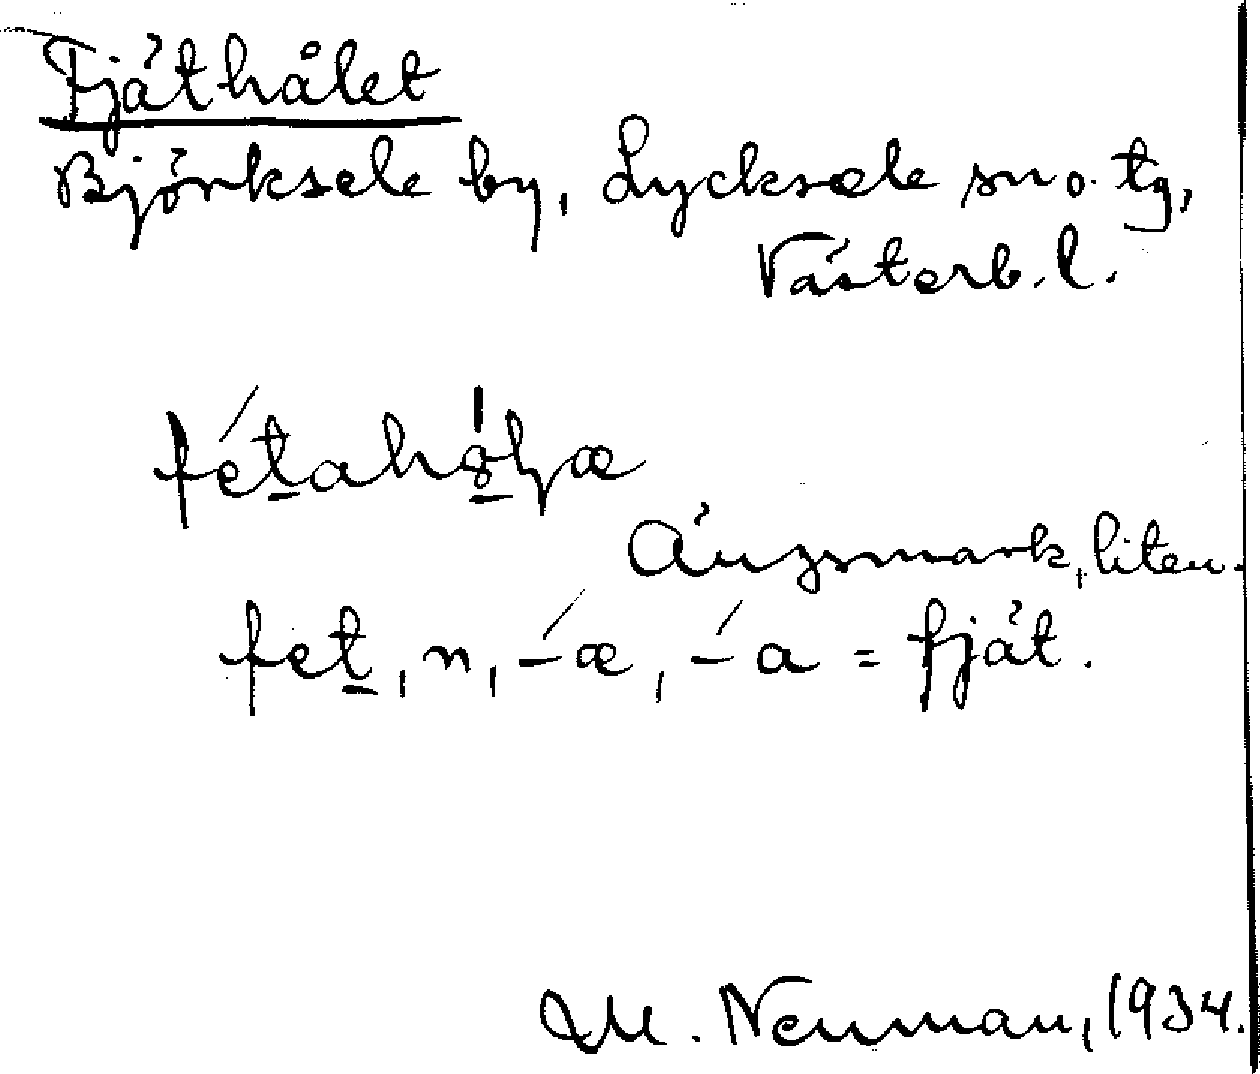 Fjäthålet
Björksele by, Lycksele sn o. tg,
Västerb. l.
Ängsmark, liten.
fet, n, -æ, -a = fjät.
M. Neuman, 1934.